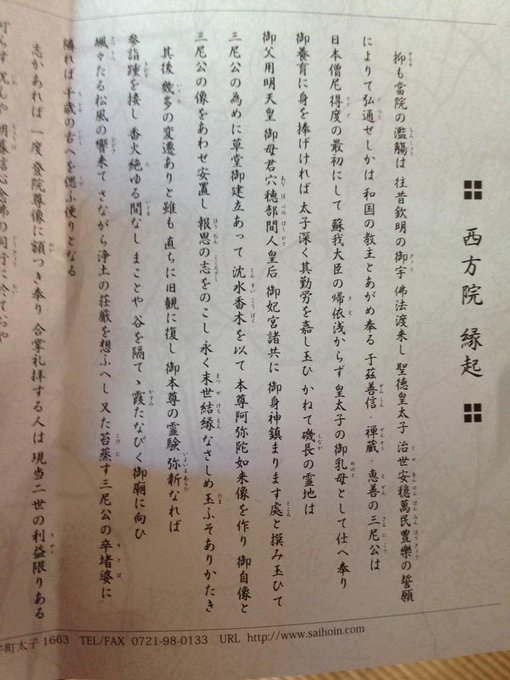 西方院 縁起
抑も當院の濫觴は 往昔欽明の御宇 佛法渡来し 聖徳皇太子 治世安穏萬民豊樂の誓願
によりて弘通せしかは 和国の教主とあがめ奉る 于茲善信・禅蔵・恵善の三尼公は
日本僧尼得度の最初にして 蘇我大臣の帰依浅からず 皇太子の御乳母として仕へ奉り
御養育に身を捧げければ 太子深く其勤労を嘉し玉ひ かねて磯長の霊地は
御父用明天皇 御母君穴穂部間人皇后 御妃宮諸共に 御身神鎮まります處と撰み玉ひて
三尼公の為めに草堂御建立あって 沈水香木を以て 本尊阿弥陀如来像を作り 御自像と
三尼公の像をあわせ安置し 報恩の志をのこし 永く末世結縁なさしめ玉ふそありかたき
其後 幾多の変遷ありと雖も 直ちに旧観に復し 御本尊の霊験 弥新なれば
参詣踵を接し 香火絶ゆる間なし まことや 谷を隔てゝ霞たなびく御廟に向ひ
颯々たる松風の響来て さながら浄土の荘厳を想ふへし 又た苔蒸す三尼公の卒堵婆に
隣れば 千歳の古へを偲ふ便りとなる
志かあれば 一度 登院尊像に額つき奉り 合掌礼拝する人は 現当二世の利益限りある
町太子1663 TEL/FAX 0721-98-0133 URL http://www.saihoin.com